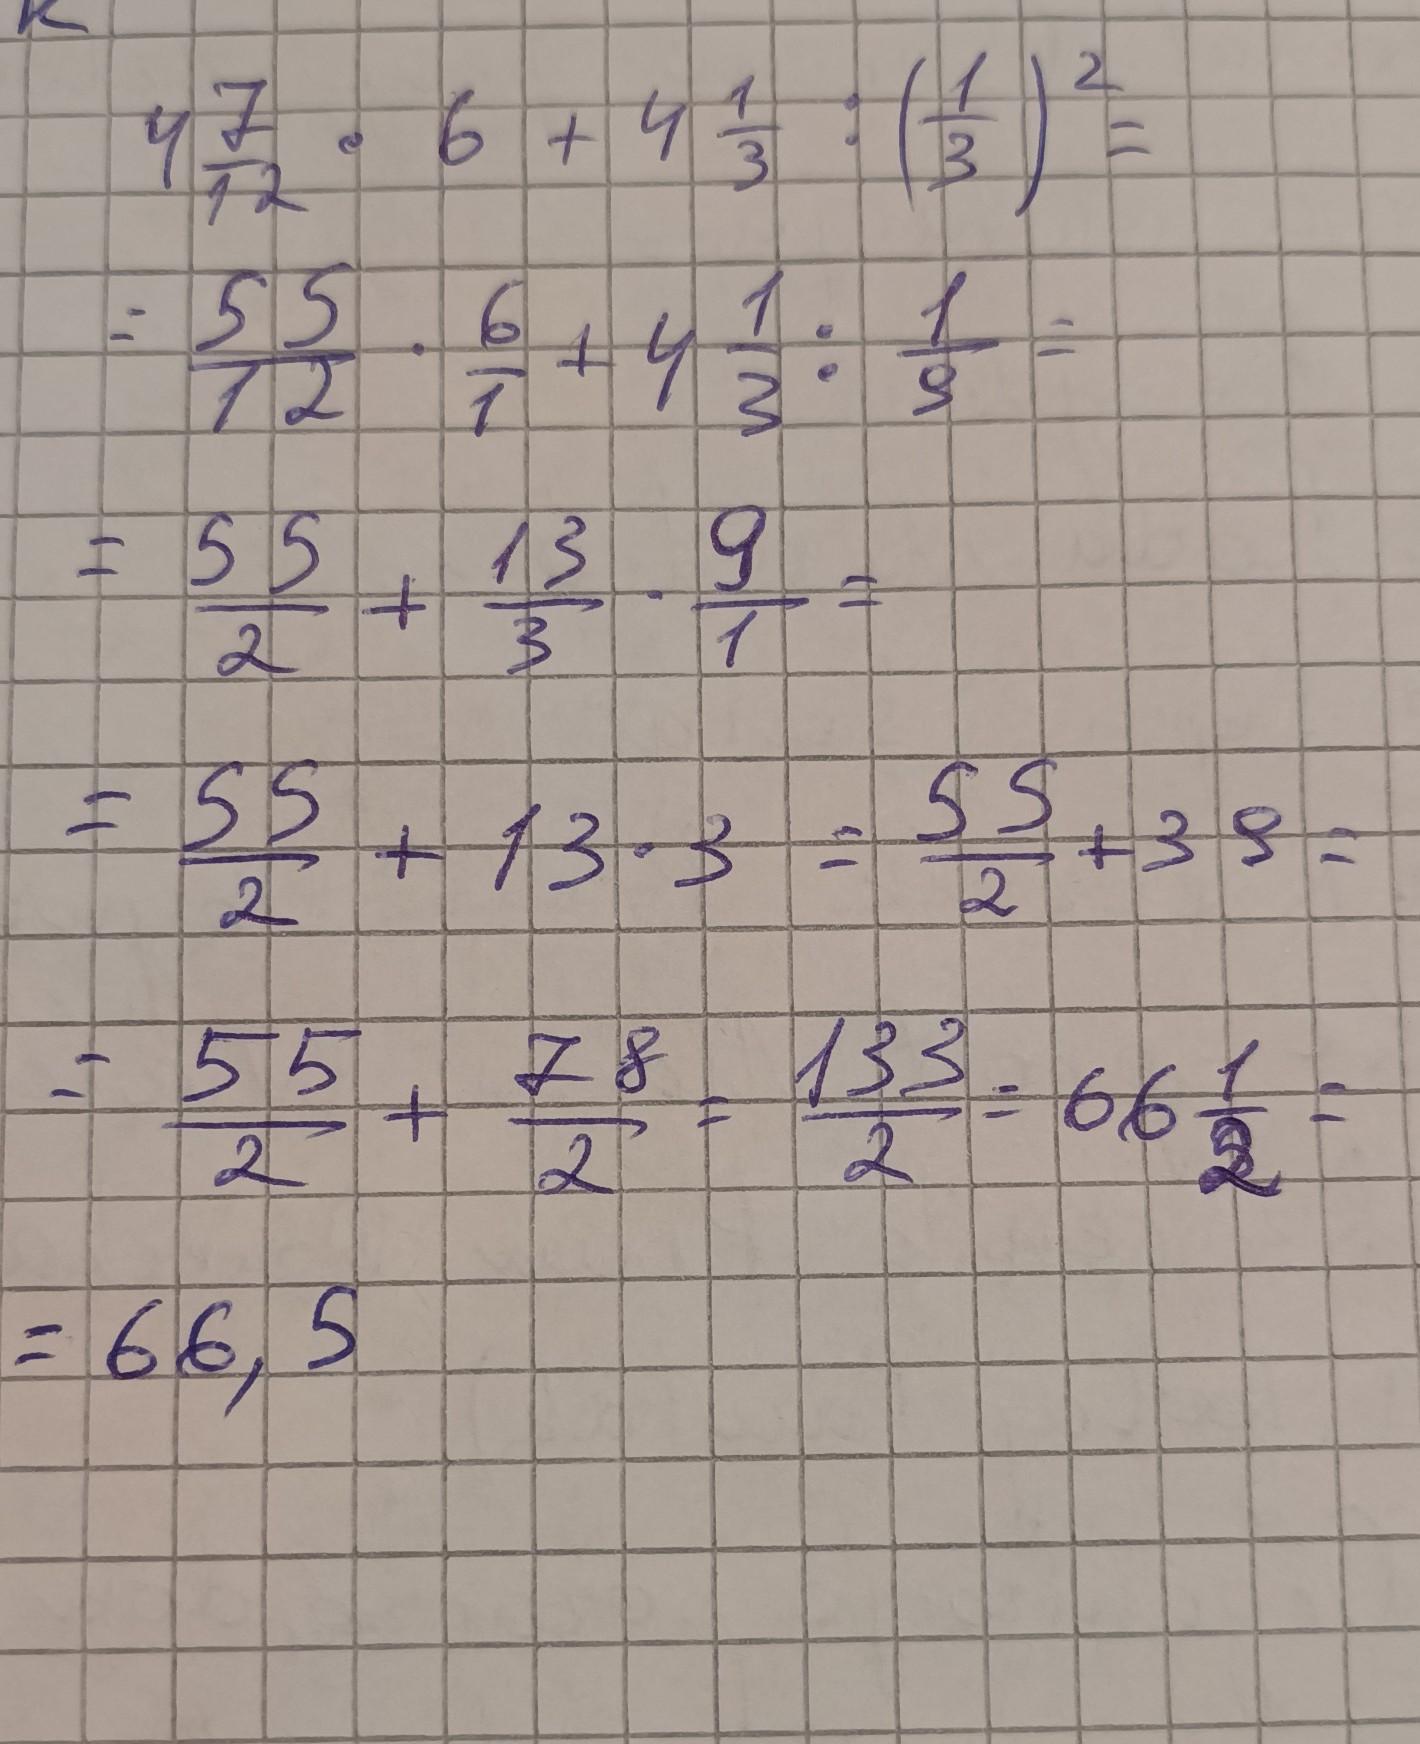 4 7/12 · 6 + 4 1/3 : (1/3)² =
= 55/12 · 6/1 + 4 1/3 : 1/9 =
= 55/2 + 13/3 · 9/1 =
= 55/2 + 13 · 3 = 55/2 + 39 =
= 55/2 + 78/2 = 133/2 = 66 1/2 =
= 66,5